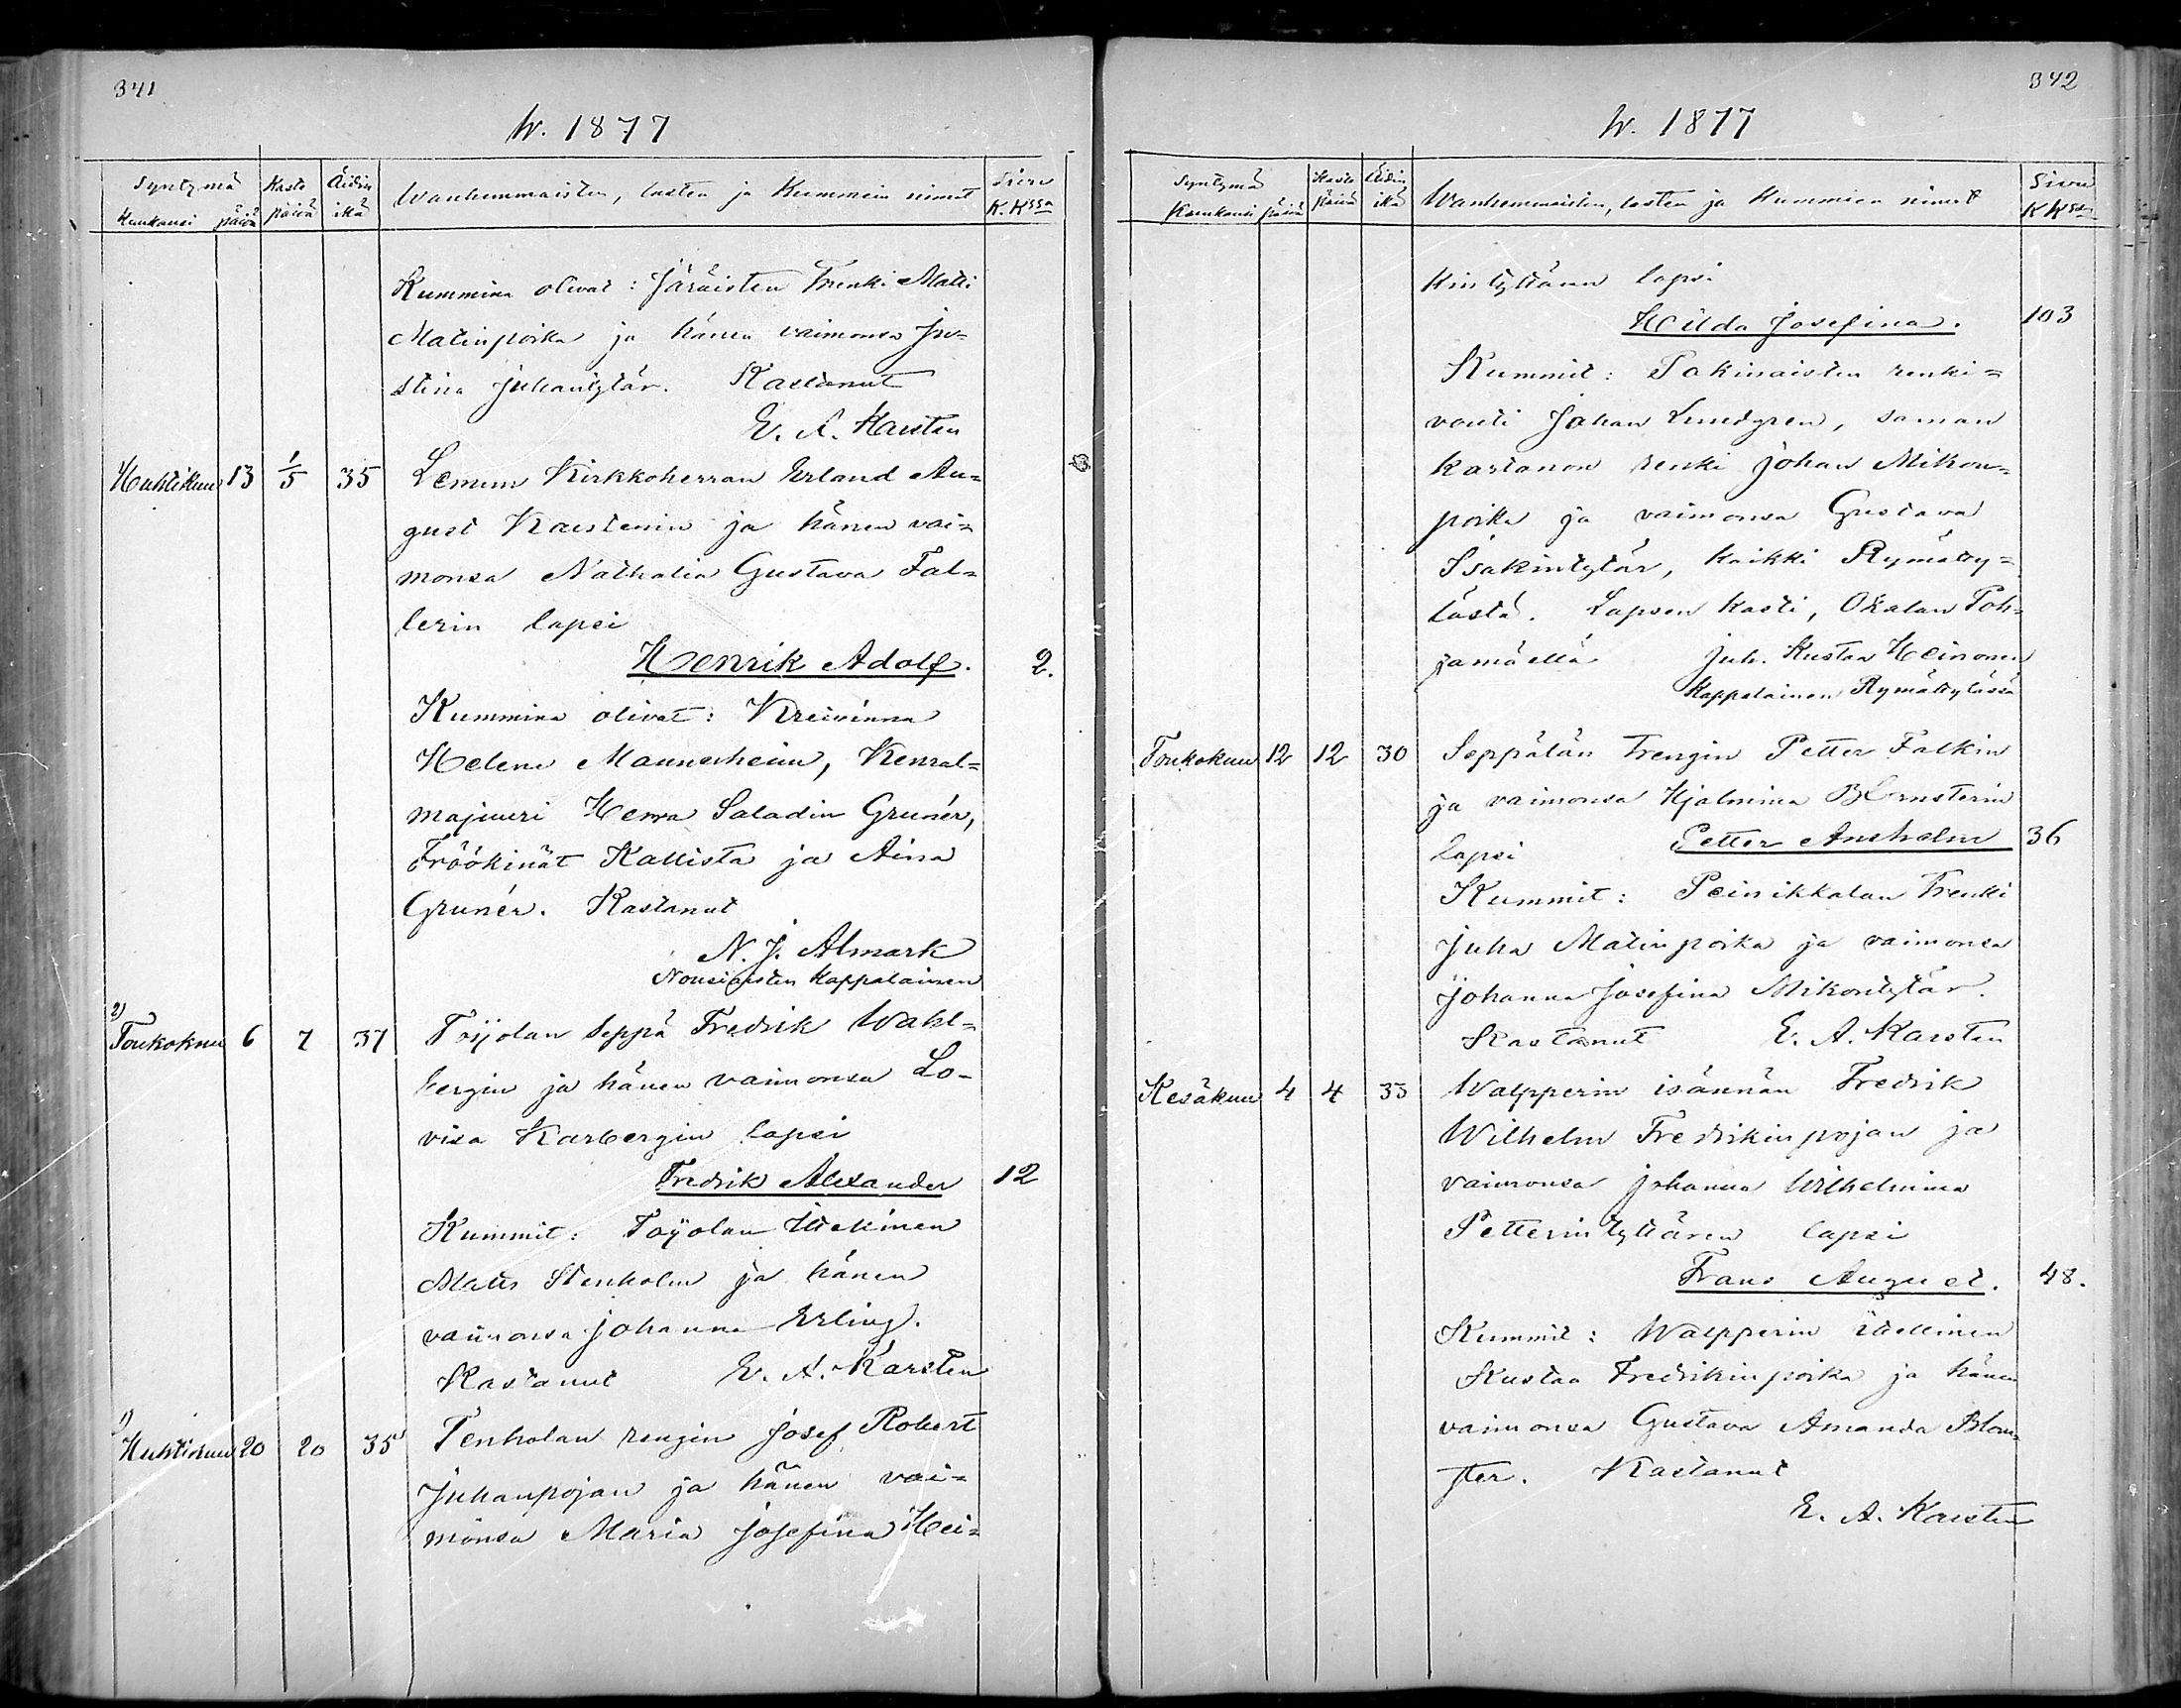 341
W. 1877
Syntymä Kaste Äidin Wanhemmaisten, lasten ja Kummein nimet Sivu
Kuukausi päivä päivä ikä K. Kssa
Kummina olivat: Järäisten Trenki Matti
Matinpoika ja hänen vaimonsa Ju=
stina Juhantytär. Kastanut
E. A. Karsten
Huhtikuu 13 1/5 35 Lemun Kirkkoherran Erland Au=
gust Karstenin ja hänen vai=
monsa Nathalia Gustava Fal=
lerin lapsi
Henrik Adolf. 2.
Kummina olivat: Kreivinna
Helene Mannerheim, Kenral=
majuuri Herra Saladin Grunér,
Fröökinät Kallista ja Aina
Grunér. Kastanut
N. J. Almark
Nousiaisten Kappalainen
2)
Toukokuu 6 7 37 Toijolan Seppä Fredrik Wahl=
bergin ja hänen vaimonsa Lo-
visa Karbergin lapsi
Fredrik Alexander 12
Kummit: Toijolan Itsekinen
Matts Stenholm ja hänen
vaimonsa Johanna Erling.
Kastanut E. A. Karsten
1)
Huhtikuu 20 20 35 Tenholan rengin Josef Robert
Juhanpojan ja hänen vai=
monsa Maria Josefina Hei=
342
W. 1877
Syntymä Kaste Äidin Wanhemmaisten, lasten ja Kummien nimet Sivu
Kuukausi päivä päivä ikä K Kssa
kintyttären lapsi
Hilda Josefina. 103
Kummit: Pakinaisten renki=
vouti Johan Lundgren, saman
kartanon renki Johan Mikon=
poika ja vaimonsa Gustava
Isakintytär, kaikki Rymätty=
lästä. Lapsen kasti, Okalan Poh=
jamäellä Juh. Kustaa Heinonen
Kappalainen Rymättylässä
Toukokuu 12 12 30 Seppälän Trengin Petter Falkin
ja vaimonsa Hjalmina Blomsterin
lapsi Petter Anshelm 36
Kummit: Peinikkalan Trenki
Juha Matinpoika ja vaimonsa
Johanna Josefina Mikontytär.
Kastanut E. A. Karsten
Kesäkuu 4 4 33 Walpperin isännän Fredrik
Wilhelm Fredrikinpojan ja
vaimonsa Johanna Wilhelmina
Petterintyttären lapsi
Frans August. 48.
Kummit: Walpperin itsellinen
Kustaa Fredrikinpoika ja hänen
vaimonsa Gustava Amanda Blom=
ster. Kastanut
E. A. Karsten